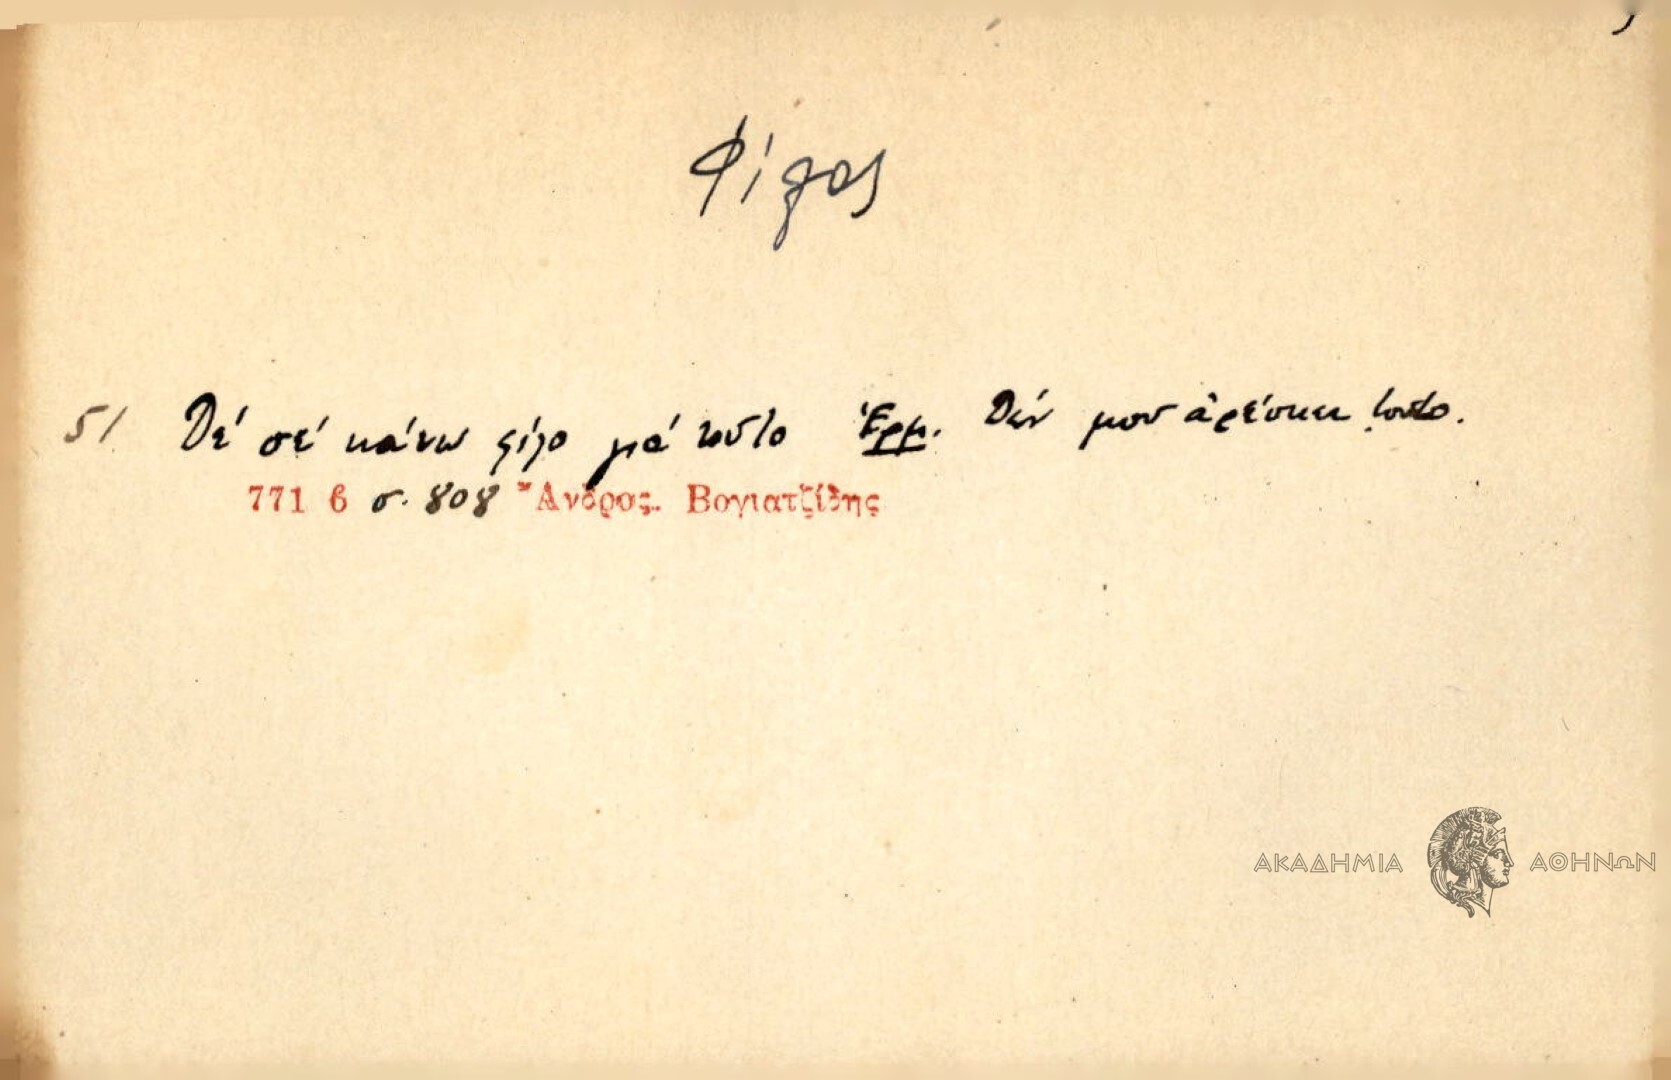 Φίλος
51 Δέ σέ κάνω φίλο γιά τοῦτο Ἑρμ. Δέν μου ἀρέσκει τοῦτο.
771 6 σ. 808 Ἄνδρος. Βογιατζίδης
ΑΚΑΔΗΜΙΑ ΑΘΗΝΩΝ